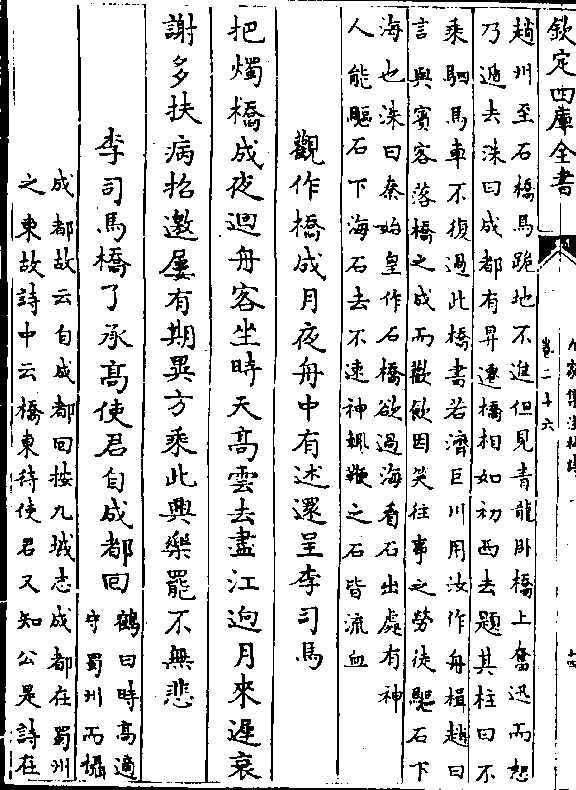 欽定四庫全書
卷二十六
趙州至石橋馬跪地不進但見青龍卧橋上奮迅而怒
乃遁去洙曰成都有昇遷橋相如初西去題其柱曰不
乘駟馬車不復過此橋書若濟巨川用汝作舟楫趙曰
言與賓客落橋之成而歡飲因笑往事之勞徒驅石下
海也洙曰秦始皇作石橋欲過海看石出處有神
人能驅石下海石去不速神輙鞭之石皆流血
觀作橋成月夜舟中有述還呈李司馬
把燭橋成夜迴舟客坐時天髙雲去盡江迥月來遲衰
謝多扶病招邀屢有期異方乘此興樂罷不無悲
李司馬橋了承髙使君自成都回
鶴曰時髙適
守蜀州而攝
成都故云自成都回按九域志成都在蜀州
之東故詩中云橋東待使君又知公是詩在